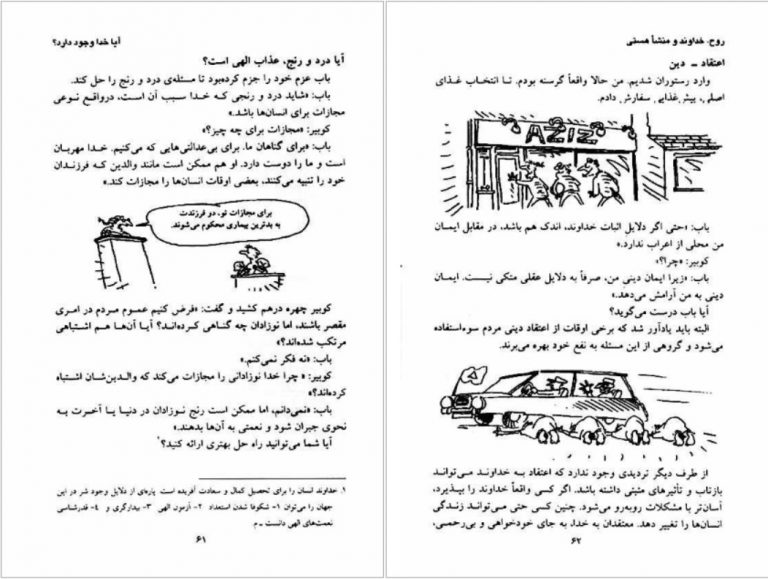 آیا خدا وجود دارد؟
آیا درد و رنج، عذاب الهی است؟
باب عزم خود را جزم کرده‌بود تا مسئله‌ی درد و رنج را حل کند.
باب: «شاید درد و رنجی که خدا سبب آن است، درواقع نوعی
مجازات برای انسان‌ها باشد.»
کوبیر: «مجازات برای چه چیز؟»
باب: «برای گناهان ما. برای بی‌عدالتی‌هایی که می‌کنیم. خدا مهربان
است و ما را دوست دارد. او هم ممکن است مانند والدین که فرزندان
خود را تنبیه می‌کنند، بعضی اوقات انسان‌ها را مجازات کند.»
برای مجازات تو، دو فرزندت
به بدترین بیماری محکوم می‌شوند.
کوبیر چهره درهم کشید و گفت: «فرض کنیم عموم مردم در امری
مقصر باشند، اما نوزادان چه گناهی کرده‌اند؟ آیا آن‌ها هم اشتباهی
مرتکب شده‌اند؟»
باب: «نه فکر نمی‌کنم.»
کوبیر: «چرا خدا نوزادانی را مجازات می‌کند که والدین‌شان اشتباه
کرده‌اند؟»
باب: «نمی‌دانم، اما ممکن است رنج نوزادان در دنیا یا آخرت به
نحوی جبران شود و نعمتی به آن‌ها بدهند.»
آیا شما می‌توانید راه حل بهتری ارائه کنید؟¹
۱. خداوند انسان را برای تحصیل کمال و سعادت آفریده است پاره‌ای از دلایل وجود شر در این
جهان را می‌توان ۱- شکوفا شدن استعداد ۲- آزمون الهی ۳- بیدارگری و ۴- قدرشناسی
نعمت‌های الهی دانست ـ م
۶۱
روح، خداوند و منشأ هستی
اعتقاد ـ دین
وارد رستوران شدیم. من حالا واقعاً گرسنه بودم. تا انتخاب غذای
اصلی، پیش‌غذایی سفارش دادم.
AZIZ
باب: «حتی اگر دلایل اثبات خداوند، اندک هم باشد، در مقابل ایمان
من محلی از اعراب ندارد.»
کوبیر: «چرا؟»
باب: «زیرا ایمان دینی من، صرفاً به دلایل عقلی متکی نیست. ایمان
دینی به من آرامش می‌دهد.»
آیا باب درست می‌گوید؟
البته باید یادآور شد که برخی اوقات از اعتقاد دینی مردم سوءاستفاده
می‌شود و گروهی از این مسئله به نفع خود بهره می‌برند.
از طرف دیگر تردیدی وجود ندارد که اعتقاد به خداوند می‌تواند
بازتاب و تأثیرهای مثبتی داشته باشد. اگر کسی واقعاً خداوند را بپذیرد،
آسان‌تر با مشکلات روبه‌رو می‌شود. چنین کسی حتی می‌تواند زندگی
انسان‌ها را تغییر دهد. معتقدان به خدا، به جای خودخواهی و بی‌رحمی،
۶۲